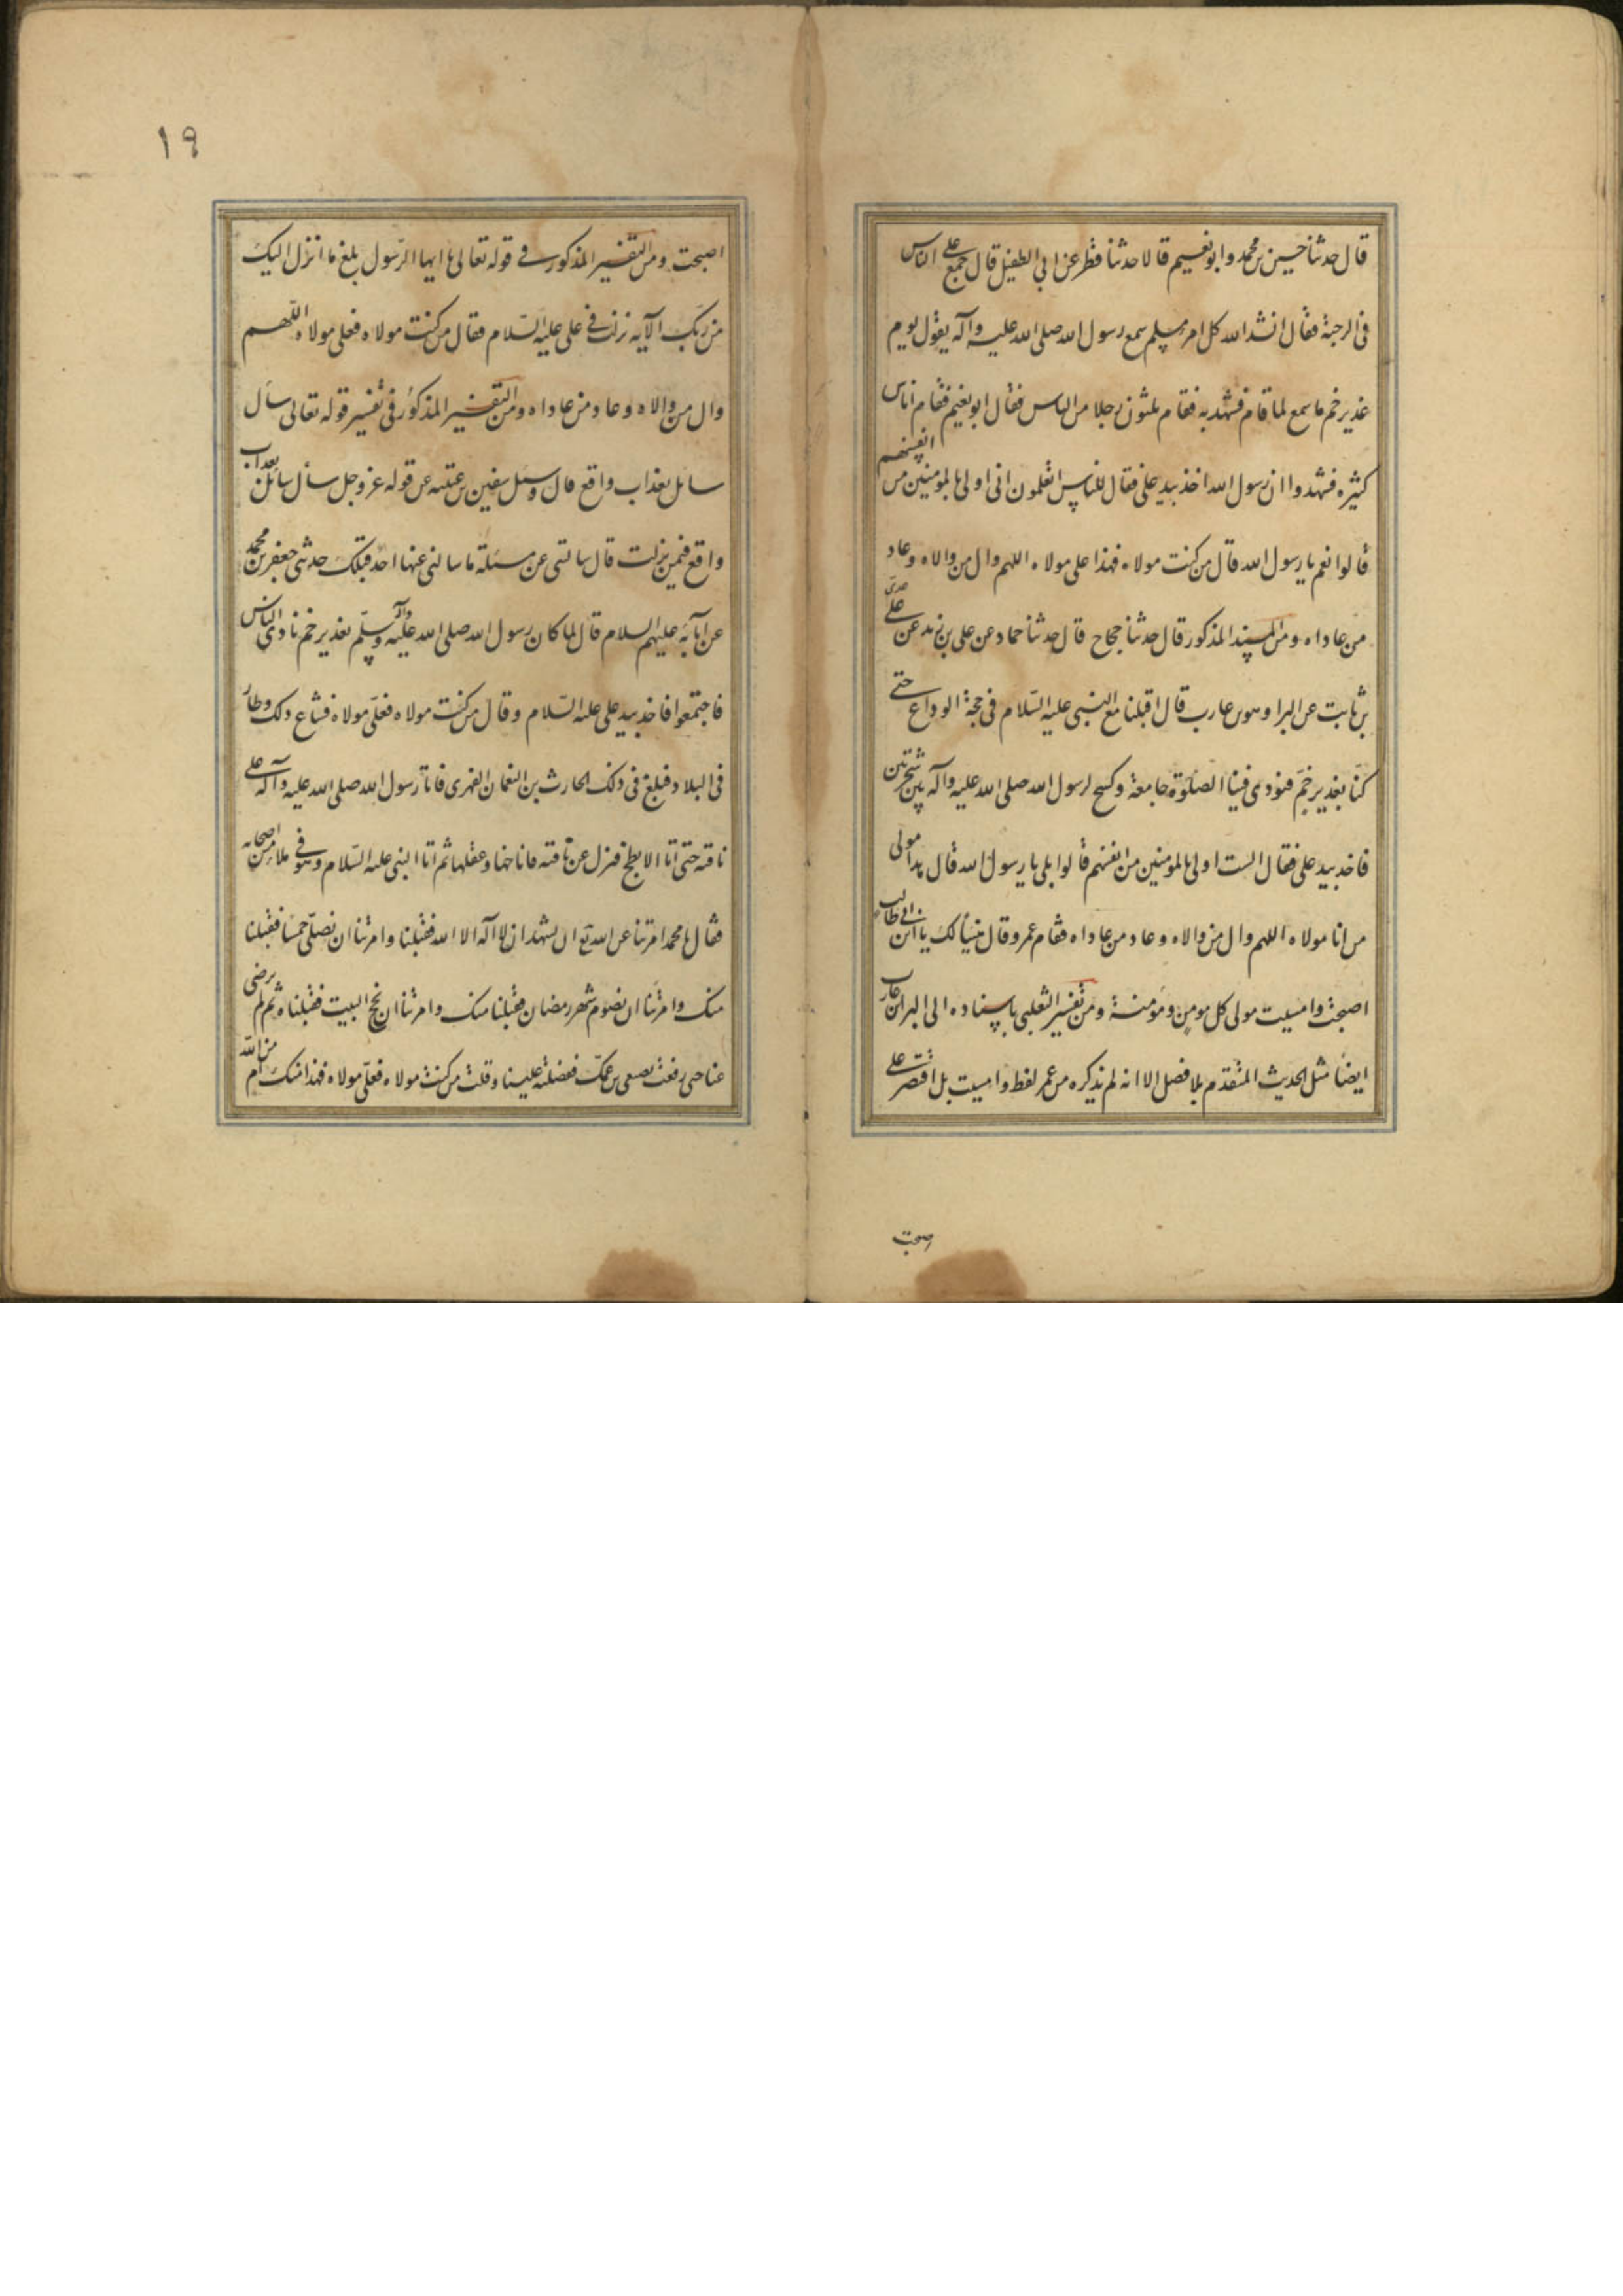 قال حدثنا حسين بن محمد وابو نعيم قالا حدثنا فطر عن ابى الطفيل قال جمع على الناس
فى الرحبة فقال انشد الله كل امر مسلم سمع رسول الله صلى الله عليه وآله يقول يوم
غدير خم ما سمع لما قام فشهد به فقام ثلثون رجلا من الناس فقال ابو نعيم فقام اناس
كثيره فشهدوا ان رسول الله اخذ بيد على فقال للناس اتعلمون انى اولى بالمؤمنين من انفسهم
قالوا نعم يا رسول الله قال من كنت مولاه فهذا على مولاه اللهم وال من والاه وعاد
من عاداه ومن المسند المذكور قال حدثنا حجاج قال حدثنا حماد عن على بن زيد عن عدى
بن ثابت عن البرا وهو بن عارب قال اقبلنا مع النبى عليه السلام فى حجة الوداع حتى
كنا بغدير خم فنودى فينا الصلوة جامعة وكسح لرسول الله صلى الله عليه وآله بين شجرتين
فاخذ بيد على فقال الست اولى بالمومنين من انفسهم قالوا بلى يا رسول الله قال هذا مولى
من انا مولاه اللهم وال من والاه وعاد من عاداه فقام عمر وقال هنيأ لك يا ابن ابى طالب
اصبحت وامسيت مولى كل مومن ومؤمنة ومن تفسير الثعلبى باسناده الى البرا بن عازب
ايضا مثل الحديث المتقدم بلا فصل الا انه لم يذكره من عمر لفظ وامسيت بل اقتصرت على
اصبحت
١٩
اصبحت ومن التفسير المذكور فى قوله تعالى يا ايها الرسول بلغ ما انزل اليك
من ربك الآيه نزلت فى على عليه السلام فقال من كنت مولاه فعلى مولاه اللهم
وال من والاه وعاد من عاداه ومن التفسير المذكور فى تفسير قوله تعالى سأل
سائل بعذاب واقع قال وسئل سفين بن عتيبه عن قوله عز وجل سأل سائل بعذاب
واقع فيمن نزلت قال سالتنى عن مسئلة ما سالنى عنها احد قبلك حدثنى جعفر بن محمد
عن ابآئه عليهم السلام قال لما كان رسول الله صلى الله عليه وآله وسلم بغدير خم نادى الناس
فاجتمعوا فاخذ بيد على عليه السلام وقال من كنت مولاه فعلى مولاه فشاع ذلك وطار
فى البلاد فبلغ فى ذلك الحارث بن النعمان الفهرى فاتا رسول الله صلى الله عليه وآله على
ناقته حتى اتا الابطح فنزل عن ناقته فاناخها وعقلها ثم اتا النبى عليه السلام وهو فى ملا من اصحابه
فقال يا محمد امرتنا عن الله تع ان نشهد ان لا اله الا الله فقبلنا وامرتنا ان نصلى خمسا فقبلنا
منك وامرتنا ان نصوم شهر رمضان فقبلنا منك وامرتنا ان نحج البيت فقبلناه ثم لم ترضى
عنا حتى رفعت بضبعى بن عمك ففضلته علينا وقلت من كنت مولاه فعلى مولاه فهذا منك ام من الله